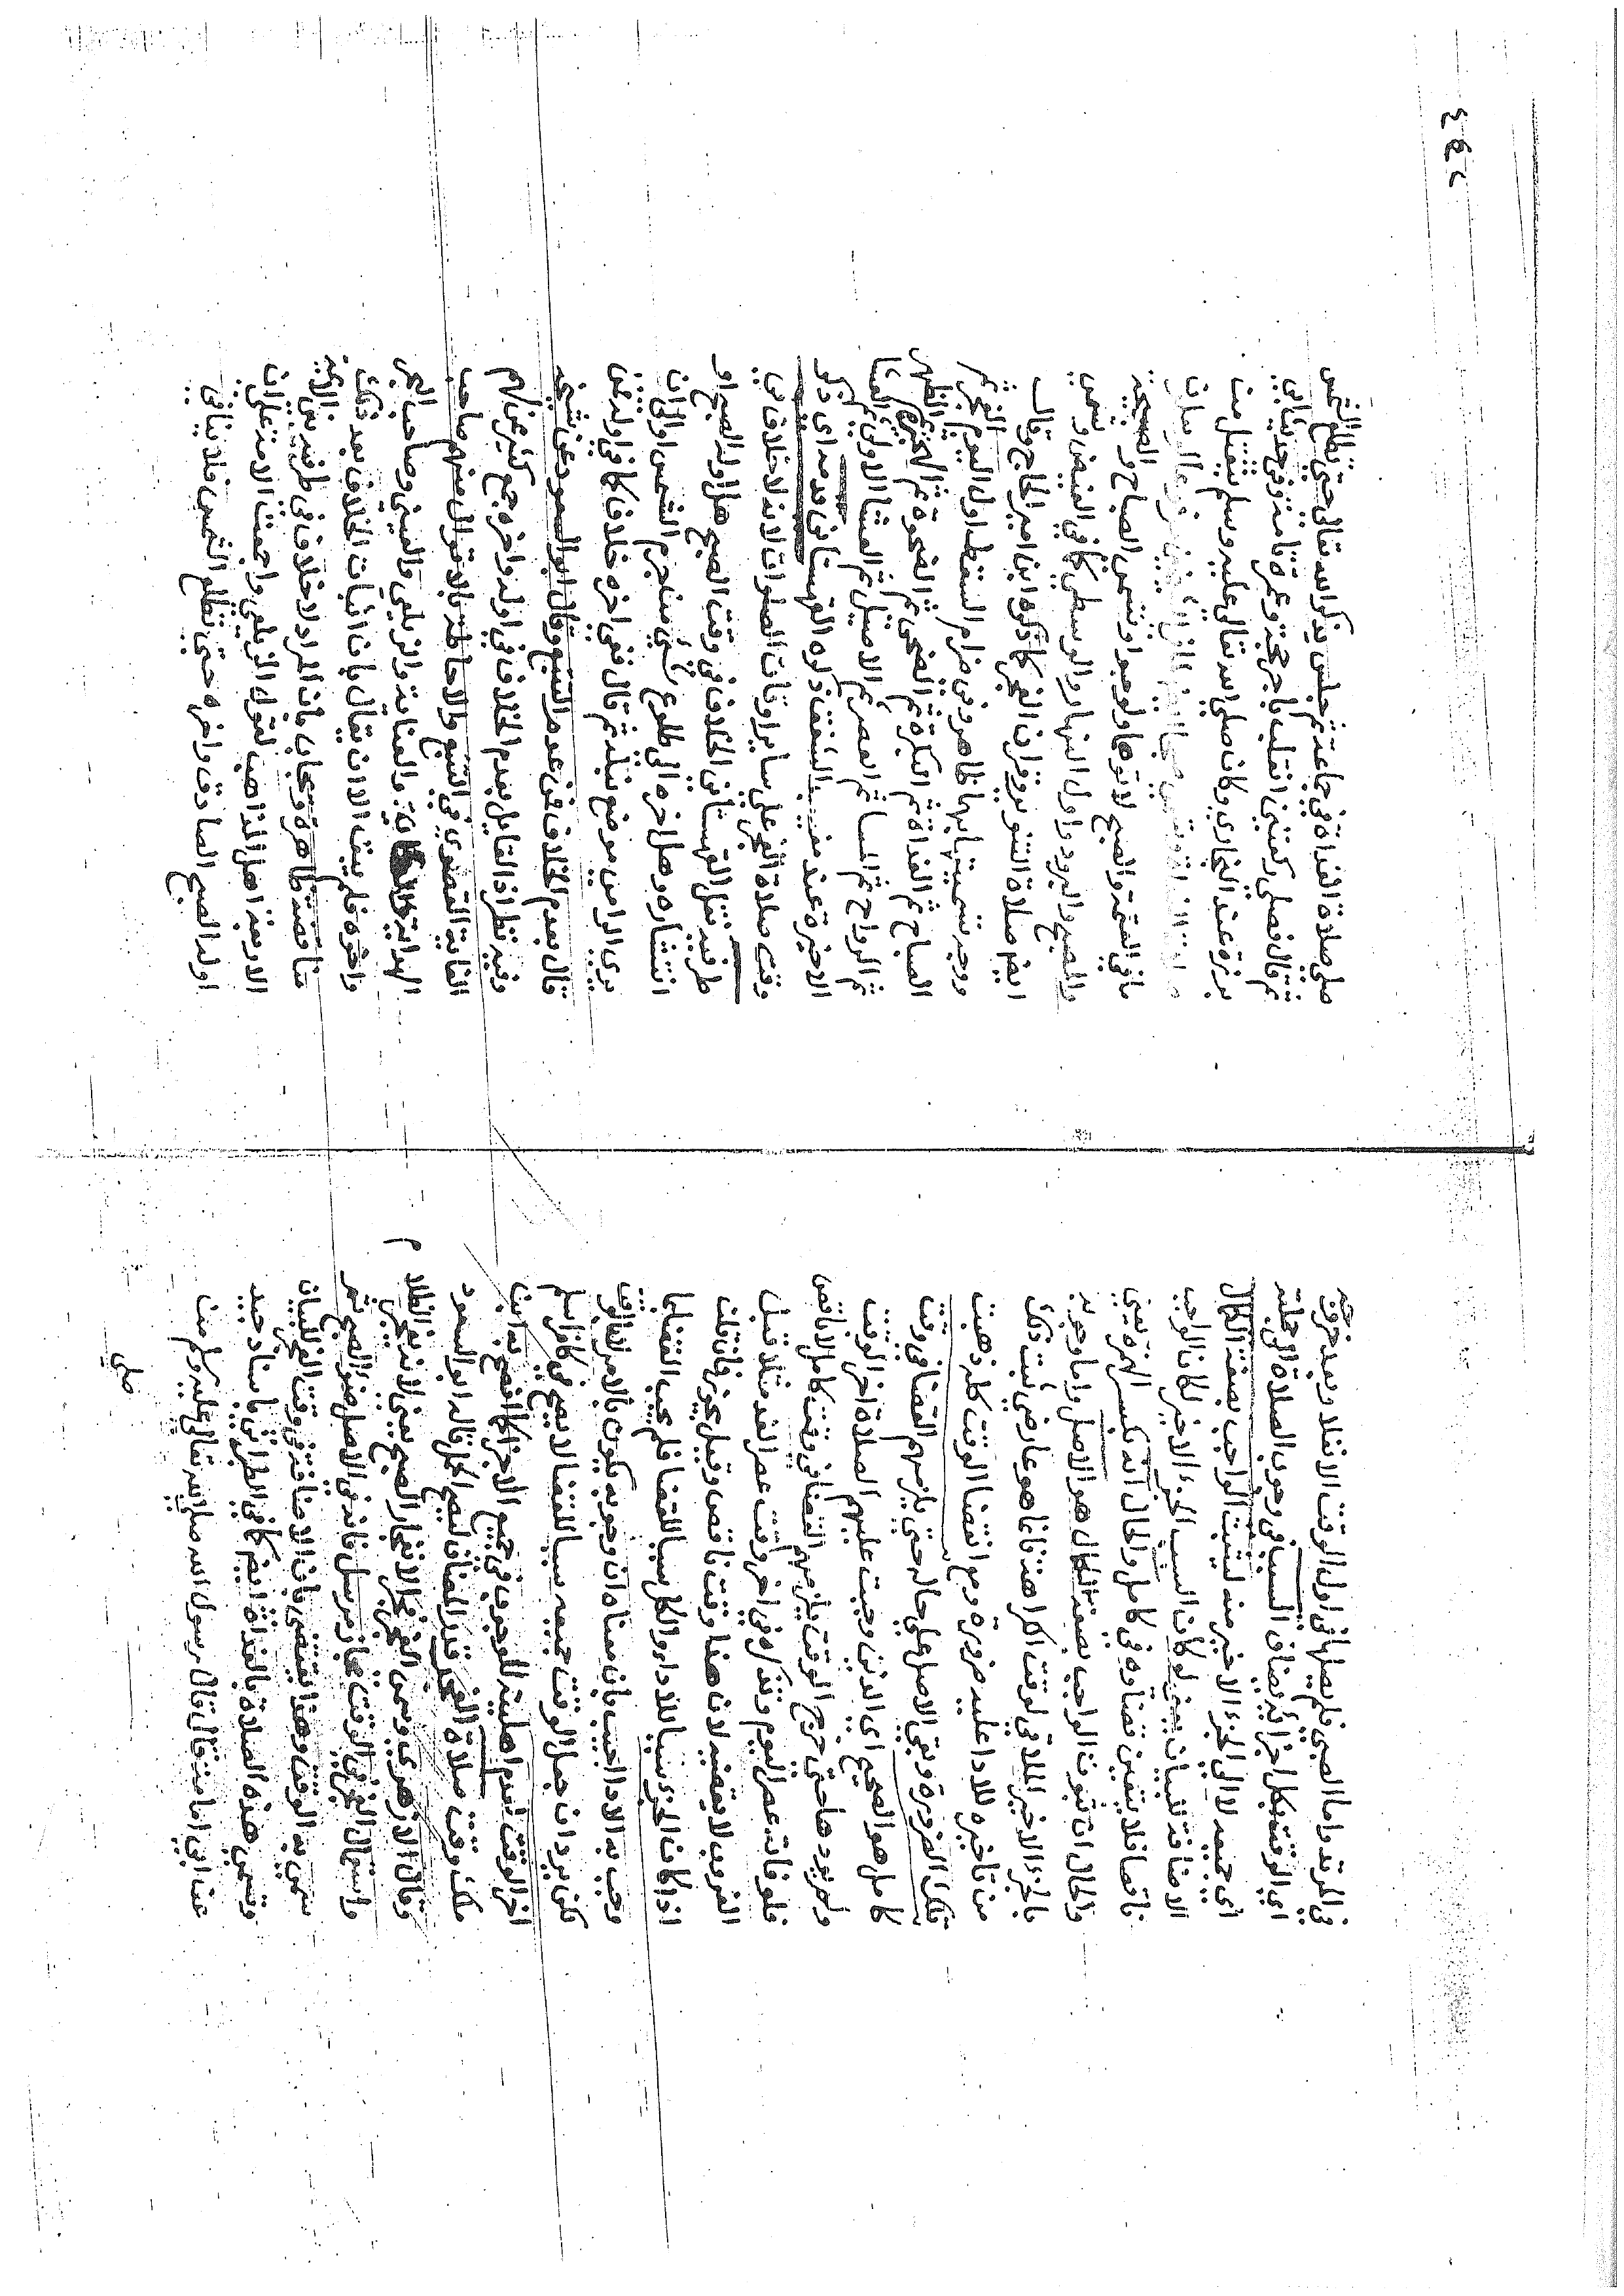 في المرتد واما الصبي فلم يصلها في اول الوقت الا نفلا وبعد خروجه
اي الوقت بكل اجزائه يضاف السبب في وجوب الصلاة الى جملته
اي جميعه لا الى الجزء الاخير منه ليثبت الواجب بصفة الكمال
الاضافة للبيان يعني لو كان السبب الجزء الاخير لكان الواجب
ناقصا فلا يتعين قضاؤه في كامل والحال انه بكسر الهمزة يعني
والحال ان ثبوت الواجب بصفة الكمال هو الاصل واما وجوبه
بالجزء الاخير الملاقي لوقت الكراهة فانما هو عارض ثبت
من تاخيره للاداء عليه ضرورة ومع انقضا الوقت كله ذهبت
تلك الضرورة وبقي الاصل على حاله حتى يلزمهم القضا في وقت
كامل هو الصحيح اي الذين وجبت عليهم الصلاة اخر الوقت
ولم يودها حتى خرج الوقت يلزمهم القضا في وقت كامل لا ناقص
فلو فاته عصر اليوم وتذكره في اخر وقت عصر الغد مثلا قبل
الغروب لا يقضيه لان هذا وقت ناقص وقيل يجوز فان قلت
اذا كان الجزء سببا للاداء والكل سببا للقضا فلم يجب القضا بما
وجب به الادا اجيب بان معناه ان وجوبه يكون بالامر لا بالوقت
لكن يرد ان جعل الوقت جميعه سببا للقضا لا يصح في كافر اسلم
اخر الوقت لعدم اهليته للوجوب في جميع الاجزا كما افصح به ابن
ملك وقت صلاة الفجر قدر المضاف ليصح الحمل قاله ابو السعود
وقال الازهري وسمى الفجر فجرا لانفجار الصبح يعني لانه يفجر الظلام
واستعمال الفجر في الوقت مجاز مرسل فانه في الاصل ضوء الصبح ثم
سمي به الوقت وهذا يقتضي بان الاضافة في وقت الفجر للبيان
وتسمى هذه الصلاة بالغداة ايضا كما في الطبراني باسناد جيد
عن ابي امامة قال قال رسول الله صلى الله تعالى عليه وسلم من
صلى
صلى صلاة الغداة في جماعة ثم جلس يذكر الله تعالى حتى تطلع الشمس
ثم قال فصلى ركعتين انقلب باجر حجة وعمرة تامة وفي حديث ابي
برزة عند البخاري وكان صلى الله تعالى عليه وسلم ينفتل من
صلاة الغداة
ما في العتمة والصبح لاتوهما ولو حبوا وتسمى الصباح والصبحية
والصبح والبرود واول النهار والوسطى كما في الفيض وتسمى
ايضا صلاة التنوير وقران الفجر كما ذكره ابن امير الحاج وقال
ووجه تسميتها بها ظاهر وفي ضرام السقط اول اليوم الفجر ثم
الصباح ثم الغداة ثم البكرة ثم الضحى ثم الضحوة ثم الهجير ثم الظهر
ثم الرواح ثم المسا ثم العصر ثم الاصيل ثم العشا الاولى ثم العشا
الاخيرة عند مغيب الشفق ذكره القهستاني قدمه اي ذكر
وقت صلاة الفجر على ساير اوقات الصلوات لانه لا خلاف في
طرفيه نقل القهستاني الخلاف في وقت الصبح هل اوله الصبح او
انتشاره وهل اخره الى طلوع شيء من جرم الشمس او الى ان
يرى الرامي موضع نبله ثم قال ففي اخره خلاف كما في اوله فمن
قال بعدم الخلاف فمن عدم التتبع وقال ابو السعود عن شيخه
وفيه نظر اذ القايل بعدم الخلاف في اوله واخره جمع كثير عن لهم
الغاية القصوى في التتبع والاحاطة بالاقوال منهم صاحب
الهداية والعناية والزيلعي والعيني وصاحب البحر
واخره فلم يبق الا ان يقال بان اثبات الخلاف بعد ذلك
مناقضة ظاهرة ويجاب بان المراد لا خلاف في طرفيه بين الايمة
الاربعة اهل المذاهب لقول الزيلعي واجمعت الامة على ان
اوله الصبح الصادق واخره حين تطلع الشمس فلا ينافي